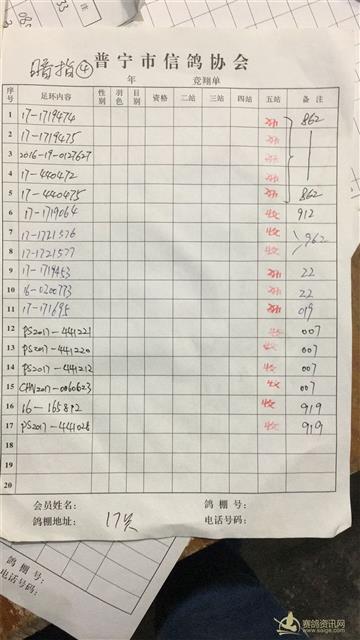 暗指④ 普宁市信鸽协会
年 竞翔单
序号 足环内容 性别 羽色 目别 资格 二站 三站 四站 五站 备注
1 17-1719474 862
2 17-1719475
3 2016-19-0127627
4 17-440472
5 17-440475 862
6 17-1719064 收 912
7 17-1721576 收 962
8 17-1721577 收
9 17-1719453 22
10 16-0200773 22
11 17-171695 019
12 PS2017-441221 收 007
13 PS2017-441220 收 007
14 PS2017-441212 收 007
15 CHN2017-0060623 收 007
16 16-165892 收 919
17 PS2017-441028 收 919
18
19
20
会员姓名: 鸽棚号:
鸽棚地址: 17只 电话号码:
鸽棚号:
电话号码:
赛鸽资讯网
www.saige.com